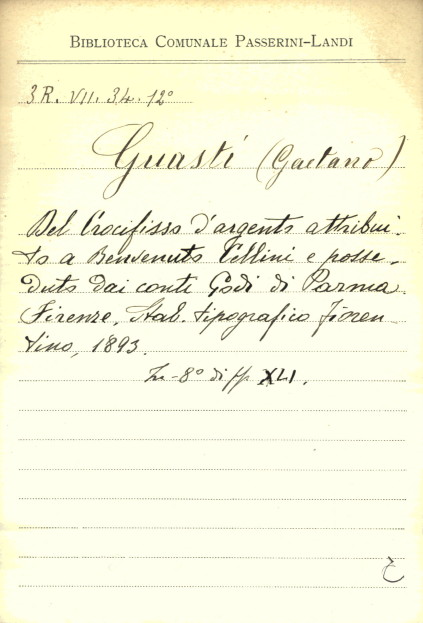 BIBLIOTECA COMUNALE PASSERINI-LANDI
3R. VII. 34. 12°
Guasti (Gaetano)
Del Crocifisso d'argento attribui-
to a Benvenuto Cellini e posse-
duto dai conti Godi di Parma
Firenze. Stab. tipografico fioren
tino, 1893.
In-8° di pp XLI.